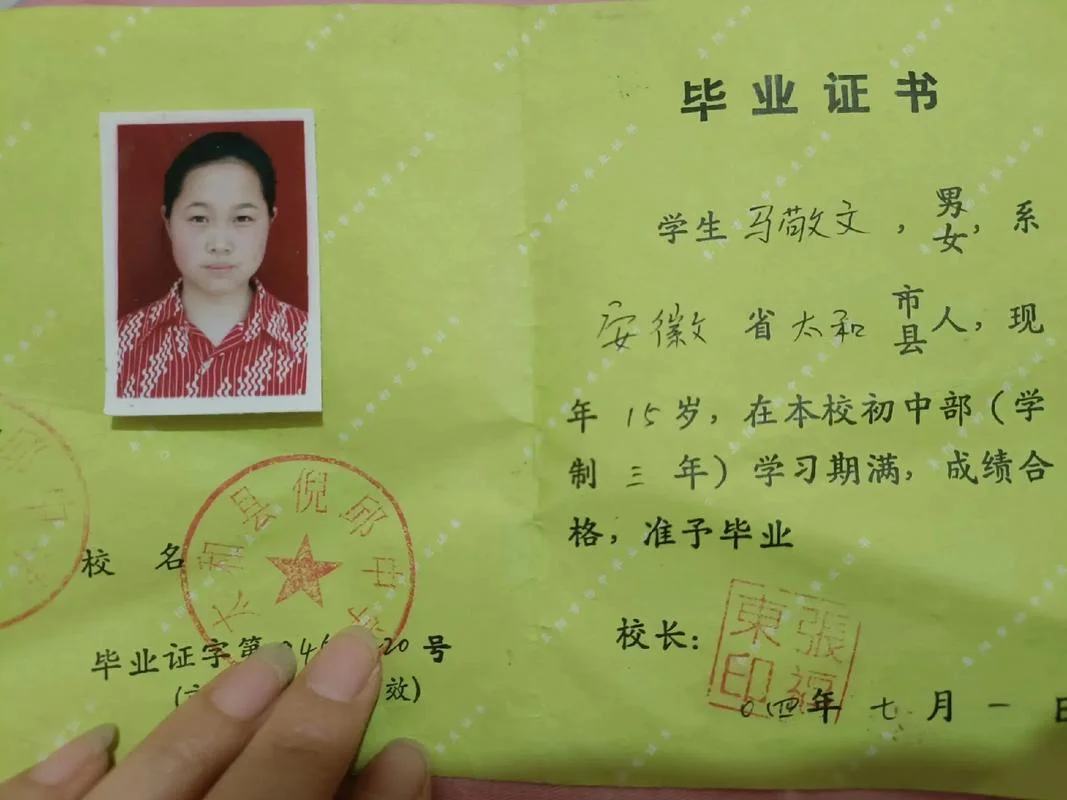 毕业证书
学生 马敬文，男女，系
安徽 省 太和 市县人，现
年 15 岁，在本校初中部（学
制 三 年）学习期满，成绩合
格，准予毕业
校长：
張福東印
〇四年 七 月 一 日
太和县倪邱中学
校 名
毕业证字第 号
效）